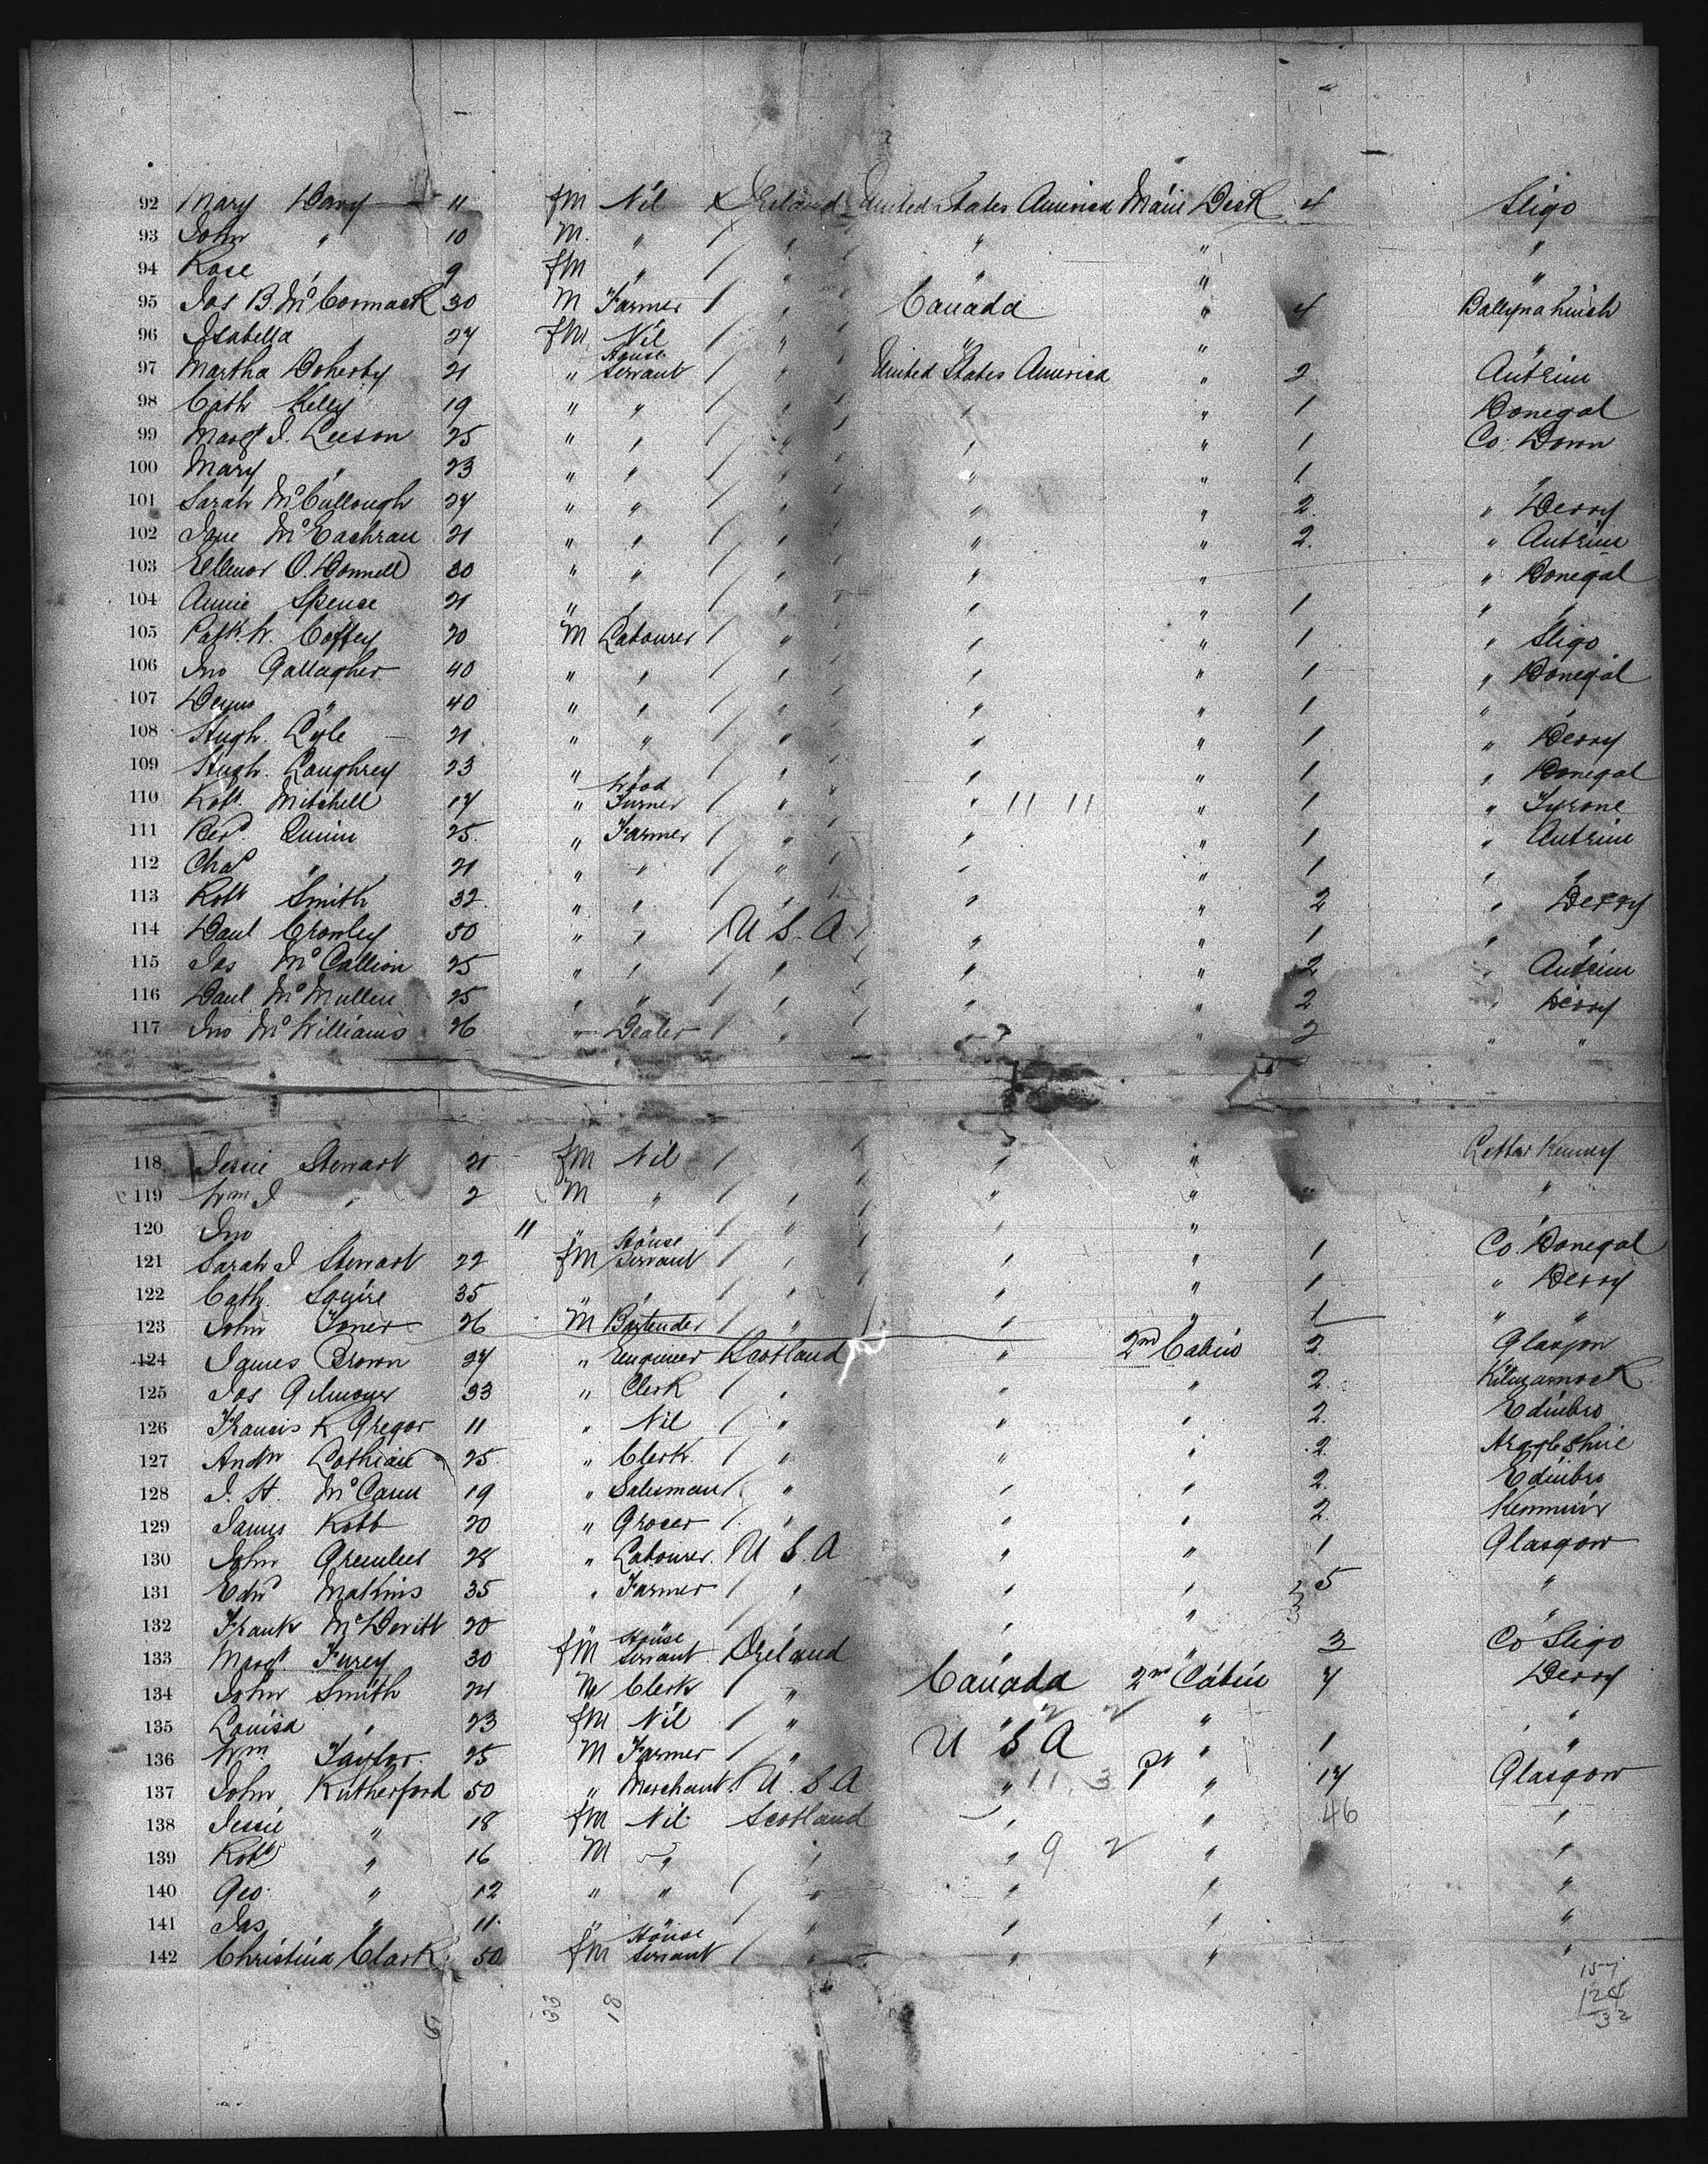 92 Mary Davy 11 fM Nil Ireland United States America Main Deck 4 Sligo
93 John " 10 M. " " " " "
94 Rose " 9 fM " " " " "
95 Jas B. McCormack 30 M Farmer " Canada " 4 Ballynahinch
96 Isabella " 24 fM Nil " " " "
97 Martha Doherty 21 " House Servant " United States America " 2 Antrim
98 Cath Kelly 19 " " " " " 1 Donegal
99 Margt J. Leeson 25 " " " " " 1 Co. Down
100 Mary " 23 " " " " " 1 "
101 Sarah McCullough 24 " " " " " 2. " Derry
102 Jane McEachran 21 " " " " " 2. " Antrim
103 Ellenor O.Donnell 30 " " " " " " Donegal
104 Annie Spence 21 " " " " " 1 " "
105 Patk W. Coffey 20 M Labourer " " " 1 " Sligo
106 Jno Gallagher 40 " " " " " 1 " Donegal
107 40 " " " " " 1 " "
108 Hugh. Lyle 21 " " " " " 1 " Derry
109 Hugh. Loughrey 23 " " " " " 1 " Donegal
110 Robt. Mitchell 17 " Wood Turner " " 11 11 " 1 " Tyrone
111 Quinn 25. " Farmer " " " 1 " Antrim
112 Chas " 21 " " " " " 1 " "
113 Robt Smith 32. " " " " " 2 " Derry
114 Danl Crowley 50 " " U S. A " " 1 " "
115 Jas McCallion 25 " " " " " 2 " Antrim
116 Danl McMullen 25 " " " " " 2 " Derry
117 Jno McWilliams 26 " Dealer " " " 2 " "
118 Jessie Stewart 21 fM Nil " " Letter Kenney
119 Wm J " 2 M " " " " " "
120 Jno 11 " " " " "
121 Sarah J Stewart 22 fM House Servant " " " 1 Co. Donegal
122 Cath. Squire 35 " " " " " 1 " Derry
123 John Toner 26 M Bartender " " " 1 " "
124 James Brown 24 " Engineer Scotland " 2nd Cabin 2. Glasgow
125 Jas Gilmour 33 " Clerk " " " 2. Kilmarnock
126 Francis K Gregor 11 " Nil " " " 2. Edinbro
127 Andw Lothian 25. " Clerk " " " 2. Argyleshire
128 J. H. McCann 19 " Salesman " " " 2. Edinbro
129 James Robb 20 " Grocer " " " 2.
130 John Greenlees 28 " Labourer. U S. A " " 1 Glasgow
131 Edwd Makins 35 " Farmer " " " 5 "
132 Frank McDevitt 20 " " " " " 3 "
133 Margt. Furey 30 fM House Servant Ireland " " 3 Co Sligo
134 John Smith 24 M Clerk " Canada 2nd Cabin 7 Derry
135 Louisa " 23 fM Nil " " 2 2 " "
136 Wm. Taylor. 25 M Farmer " U S A " 1 "
137 John Rutherford 50 " Merchant. U. S. A " 11 3 1st " 17 Glasgow
138 Jessie " 18 fM Nil Scotland " " 46 "
139 Robt " 16 M " " " 9 2 " "
140 Geo. " 12 " " " " " "
141 Jas " 11. " " " " " "
142 Christina Clark 50 fM House Servant " " " "
33 18
157
124
32